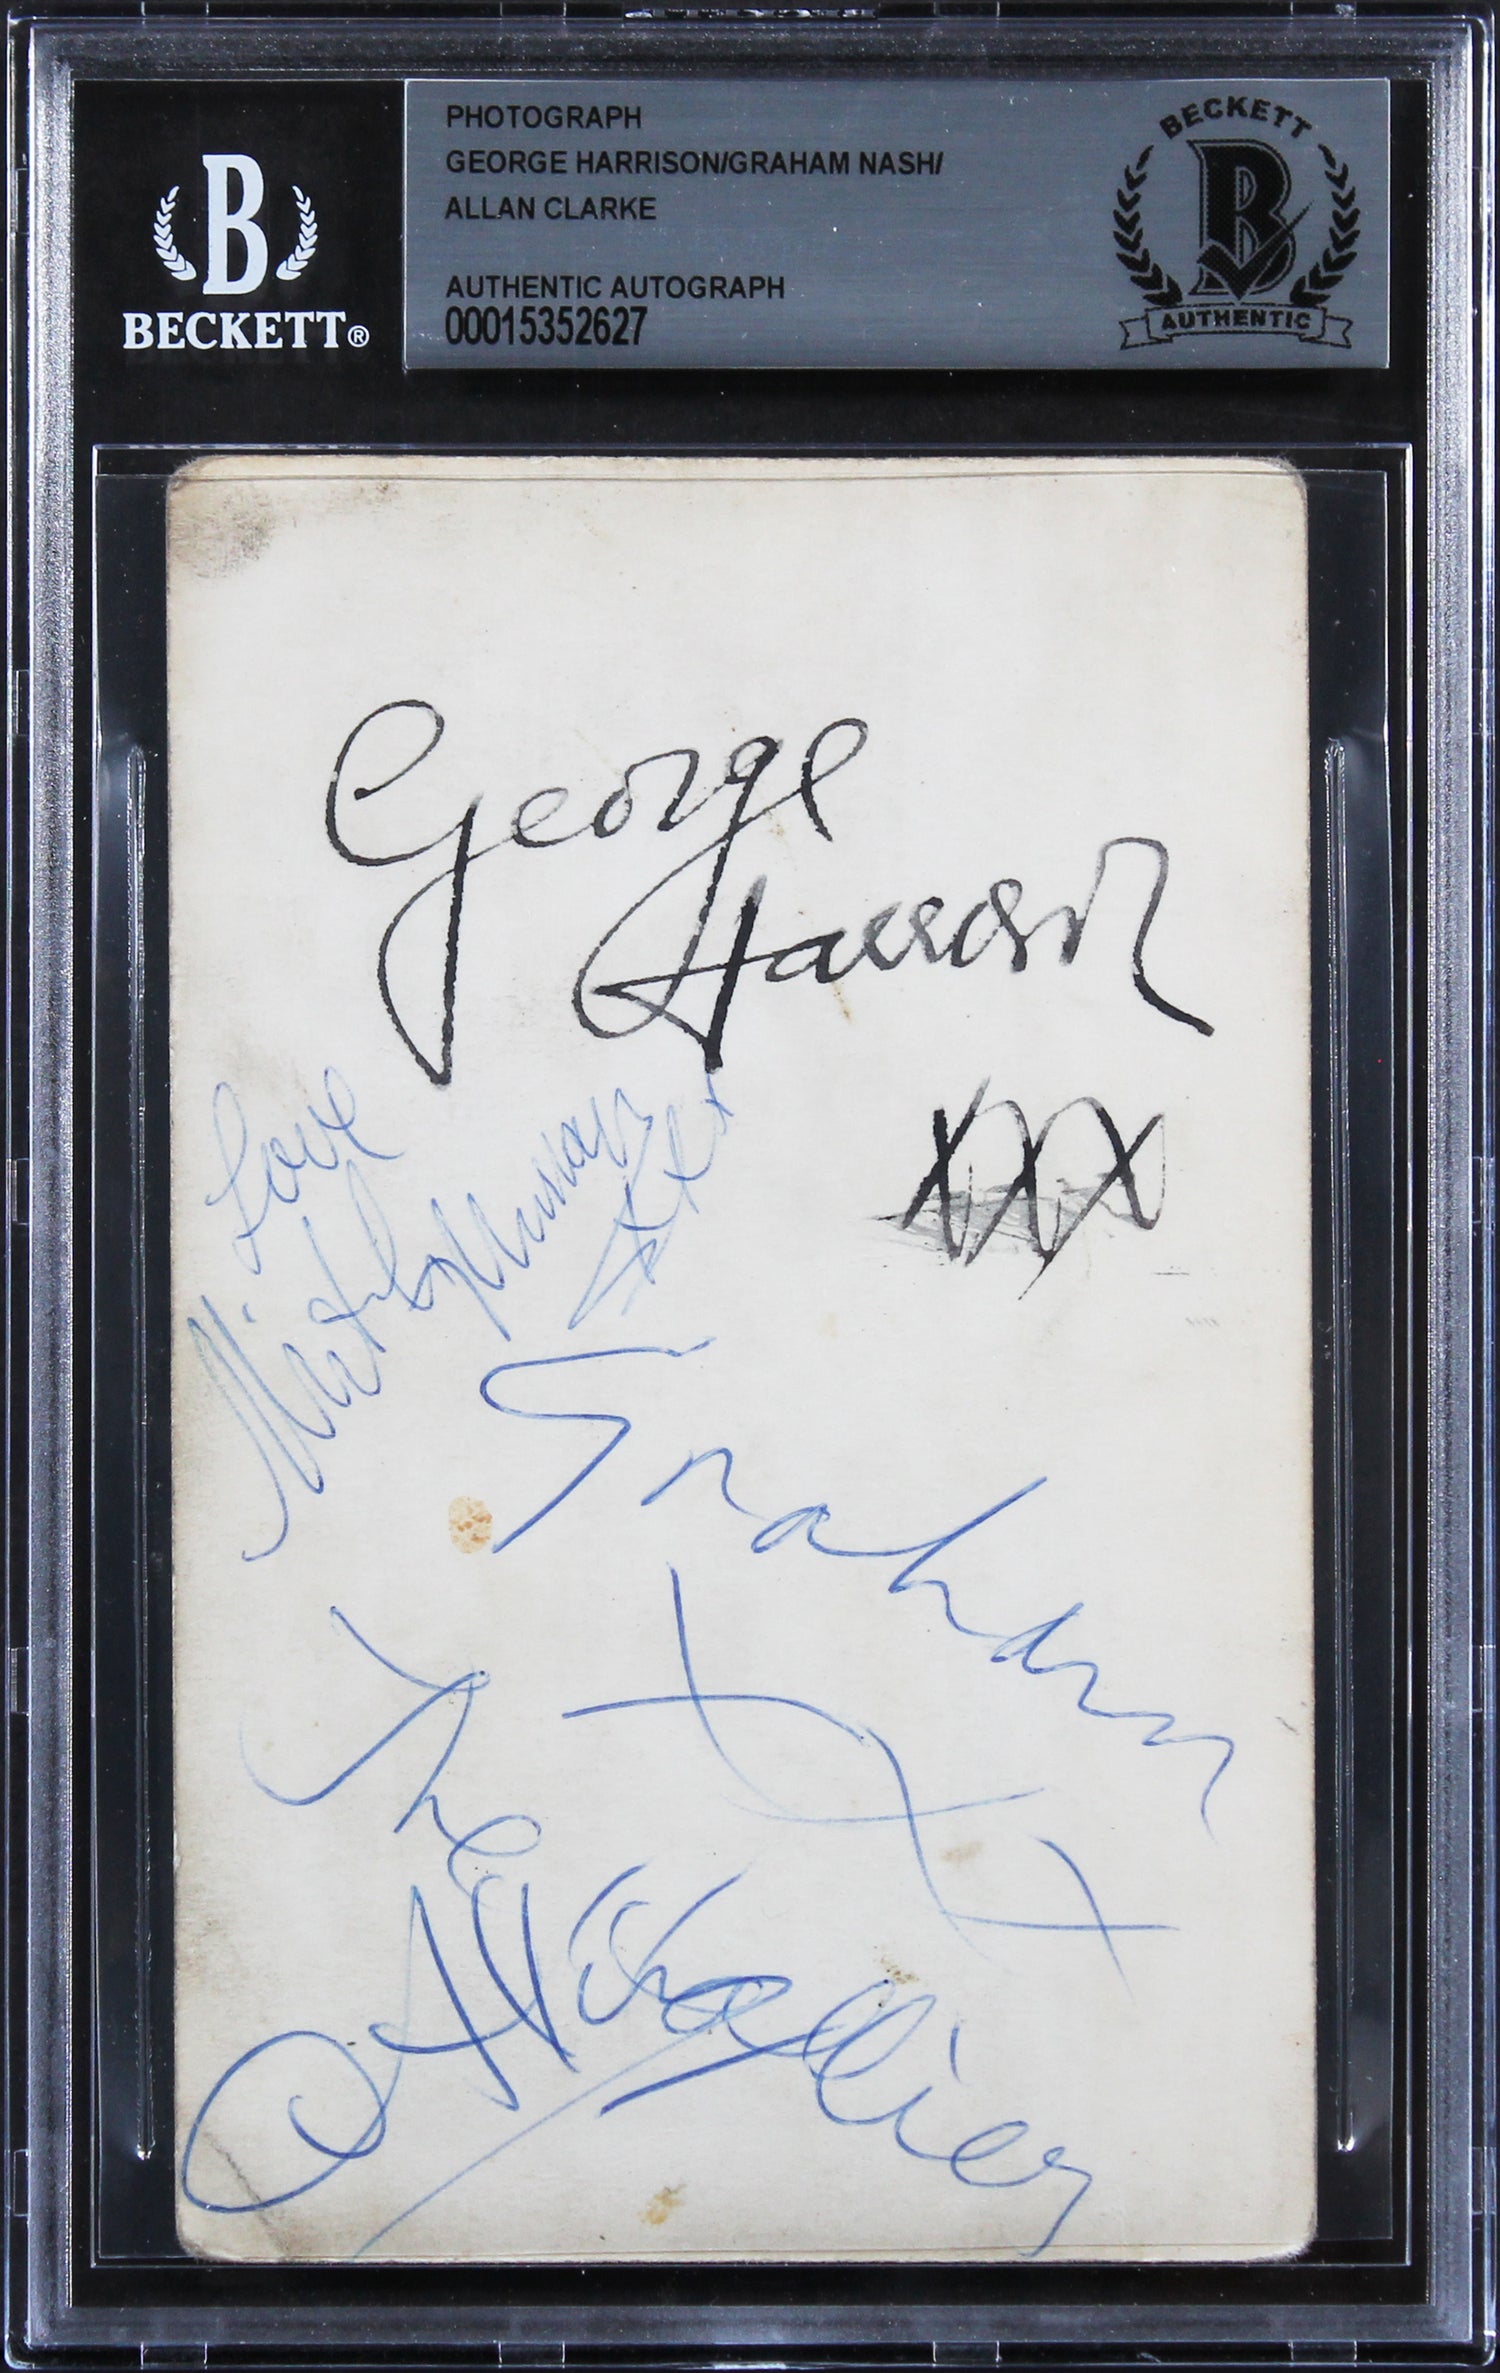 BECKETT®
PHOTOGRAPH
GEORGE HARRISON/GRAHAM NASH/
ALLAN CLARKE
AUTHENTIC AUTOGRAPH
00015352627
BECKETT
B
AUTHENTIC
George
Harrison
xxx
Love
xxx
Graham
xxx
The
Hollies